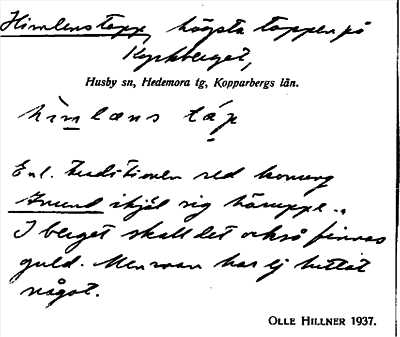 Himlens topp, högsta toppen på
Kyrkberget,
Husby sn, Hedemora tg, Kopparbergs län.
hìmlæns táp
Enl. traditionen red konung
Inund ihjäl sig häruppe.
I berget skall det också finnas
guld. Men man har ej hittat
något.
OLLE HILLNER 1937.